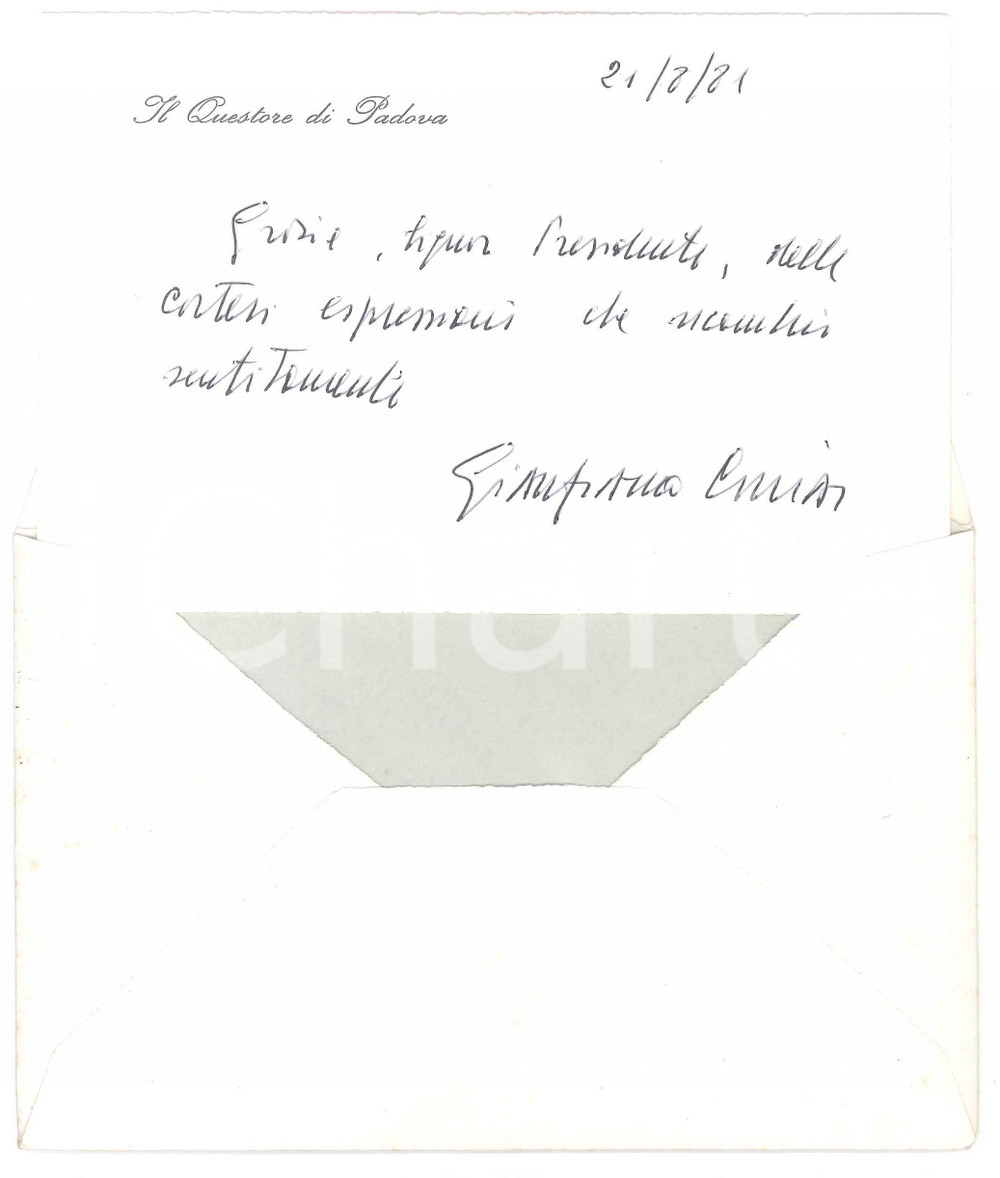 21/8/81
Il Questore di Padova
Grazie, Signor Presidente, delle
cortesi espressioni che ricambio
sentitamente
Gianfranco Corrias
Charta